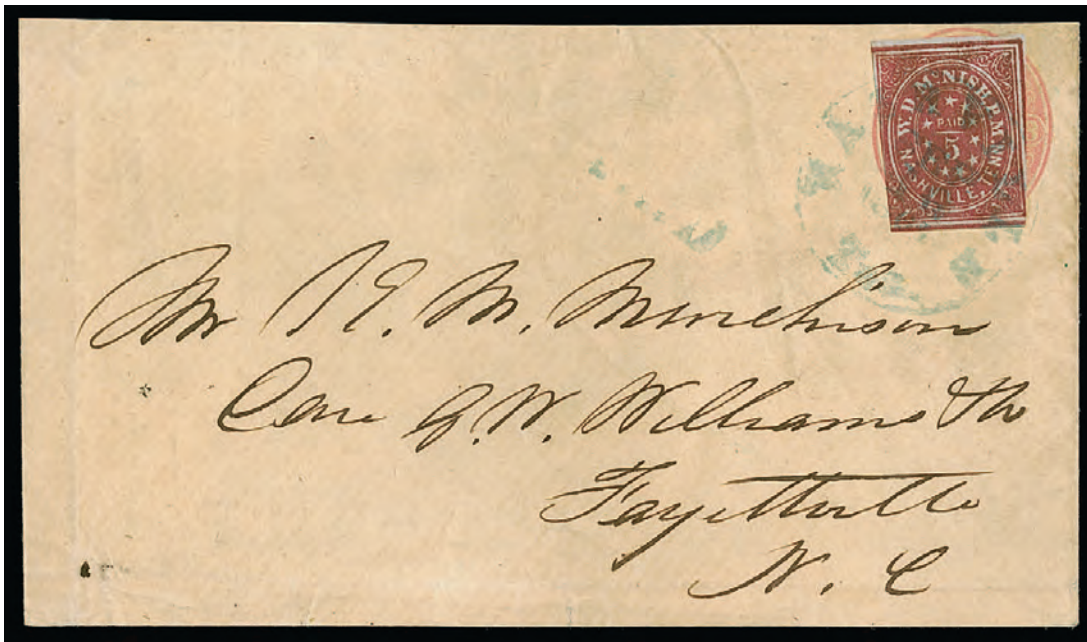 W. D. McNISH, P.M.
PAID
5
NASHVILLE, TENN.
Mr K. M. Murchison
Care G. W. Williams & Co
Fayetteville
N. C